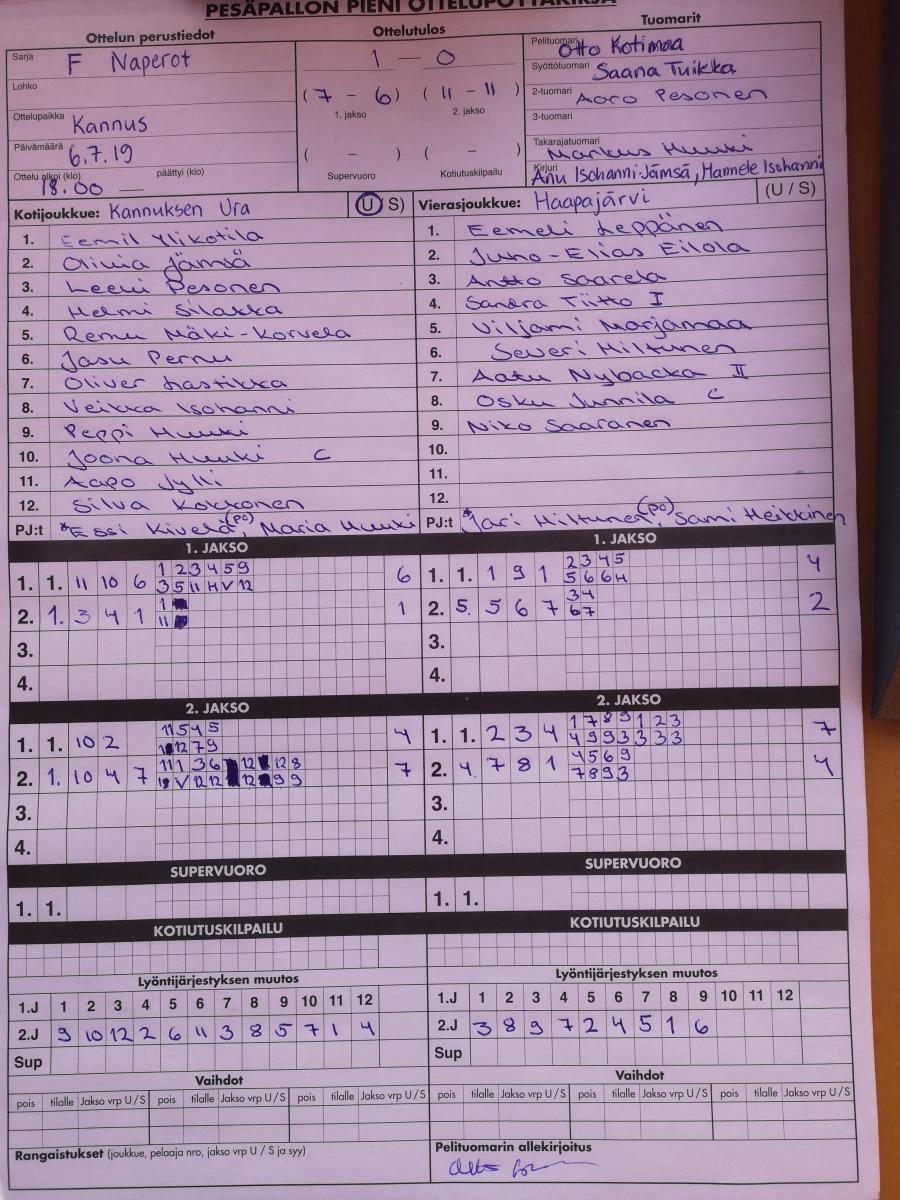 PESÄPALLON PIENI OTTELUPÖYTÄKIRJA
Ottelun perustiedot
Sarja F Naperot
Lohko
Ottelupaikka Kannus
Päivämäärä 6.7.19
Ottelu alkoi (klo) 18.00 — päättyi (klo)
Ottelutulos
1 — 0
( 7 - 6 ) ( 11 - 11 )
1. jakso 2. jakso
( - ) ( - )
Supervuoro Kotiutuskilpailu
Tuomarit
Pelituomari Otto Kotimaa
Syöttötuomari Saana Tuikka
2-tuomari Aaro Pesonen
3-tuomari
Takarajatuomari Markus Huuki
Kirjuri Anu Isohanni-Jämsä, Hannele Isohanni
Kotijoukkue: Kannuksen Ura (U/S)
1. Eemil Ylikotila
2. Olivia Jämsä
3. Leevi Pesonen
4. Helmi Silakka
5. Remu Mäki-Korvela
6. Jasu Pernu
7. Oliver Lastikka
8. Veikka Isohanni
9. Peppi Huuki
10. Joona Huuki C
11. Aapo Jylli
12. Silva Kokkonen
PJ:t *Essi Kivelä (pc), Maria Huuki
Vierasjoukkue: Haapajärvi (U / S)
1. Eemeli Leppänen
2. Juno-Elias Eilola
3. Antto Saarela
4. Sandra Tiitto I
5. Viljami Marjamaa
6. Severi Hiltunen
7. Aatu Nybacka II
8. Osku Junnila C
9. Niko Saaranen
10.
11.
12.
PJ:t *Jari Hiltunen (pc), Sami Heikkinen
1. JAKSO
1. 1. 11 10 6 1 2 3 4 5 9 6
3 5 11 H V 12
2. 1. 3 4 1 1 1
11
3.
4.
1. JAKSO
1. 1. 1 9 1 2 3 4 5 4
5 6 6 H
2. 5. 5 6 7 3 4 2
6 7
3.
4.
2. JAKSO
1. 1. 10 2 11 5 4 5 4
12 7 9
2. 1. 10 4 7 11 1 3 6 12 12 8 7
V 12 12 12 9 9
3.
4.
2. JAKSO
1. 1. 2 3 4 1 7 8 9 1 2 3 7
4 9 9 3 3 3 3
2. 4. 7 8 1 4 5 6 9 4
7 8 9 3
3.
4.
SUPERVUORO
1. 1.
SUPERVUORO
1. 1.
KOTIUTUSKILPAILU
KOTIUTUSKILPAILU
Lyöntijärjestyksen muutos
1.J 1 2 3 4 5 6 7 8 9 10 11 12
2.J 9 10 12 2 6 11 3 8 5 7 1 4
Sup
Lyöntijärjestyksen muutos
1.J 1 2 3 4 5 6 7 8 9 10 11 12
2.J 3 8 9 7 2 4 5 1 6
Sup
Vaihdot
pois tilalle Jakso vrp U/S pois tilalle Jakso vrp U/S pois tilalle Jakso vrp U/S
Vaihdot
pois tilalle Jakso vrp U/S pois tilalle Jakso vrp U/S pois tilalle Jakso vrp U/S
Rangaistukset (joukkue, pelaaja nro, jakso vrp U / S ja syy)
Pelituomarin allekirjoitus